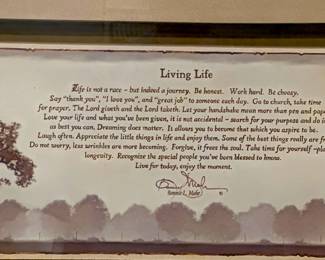 Living Life
Life is not a race - but indeed a journey. Be honest. Work hard. Be choosy.
Say "thank you", "I love you", and "great job" to someone each day. Go to church, take time
for prayer. The Lord giveth and the Lord taketh. Let your handshake mean more than pen and pap
Love your life and what you've been given, it is not accidental - search for your purpose and do it
as best you can. Dreaming does matter. It allows you to become that which you aspire to be.
Laugh often. Appreciate the little things in life and enjoy them. Some of the best things really are fr
Do not worry, less wrinkles are more becoming. Forgive, it frees the soul. Take time for yourself - pla
longevity. Recognize the special people you've been blessed to know.
Live for today, enjoy the moment.
Bonnie L. Mohr